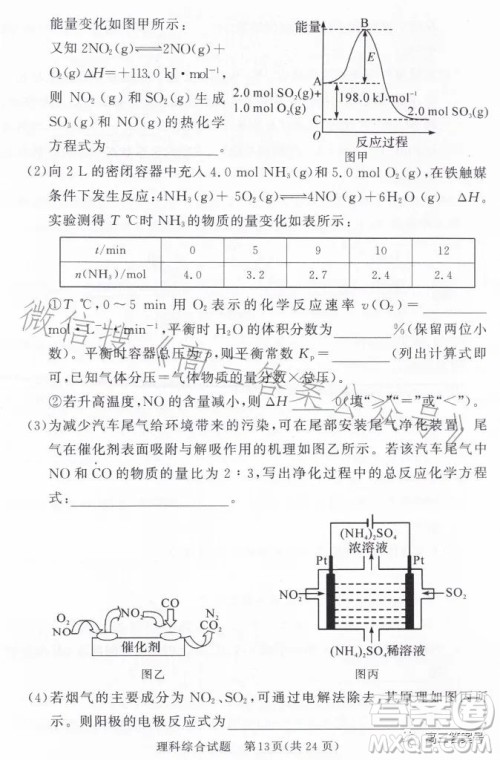 能量变化如图甲所示:
又知 2NO₂(g)⇌2NO(g)+
O₂(g) ΔH=+113.0 kJ·mol⁻¹,
则 NO₂(g)和 SO₂(g)生成
SO₃(g)和 NO(g)的热化学
方程式为____________。
能量
B
E
A
2.0 mol SO₂(g)+
1.0 mol O₂(g)
198.0 kJ·mol⁻¹
C
2.0 mol SO₃(g)
O
反应过程
图甲
(2)向 2 L 的密闭容器中充入 4.0 mol NH₃(g)和 5.0 mol O₂(g),在铁触媒
条件下发生反应:4NH₃(g)+5O₂(g)⇌4NO(g)+6H₂O(g) ΔH。
实验测得 T ℃时 NH₃的物质的量变化如表所示:
t/min 0 5 9 10 12
n(NH₃)/mol 4.0 3.2 2.7 2.4 2.4
①T ℃,0~5 min 用 O₂表示的化学反应速率 v(O₂)=______
mol·L⁻¹·min⁻¹,平衡时 H₂O 的体积分数为______%(保留两位小
数)。平衡时容器总压为 p,则平衡常数 Kₚ=______(列出计算式即
可,已知气体分压=气体总压×气体的物质的量分数)。
②若升高温度,NO 的含量减小,则 ΔH______0(填“>”“=”或“<”)。
(3)为减少汽车尾气给环境带来的污染,可在尾部安装尾气净化装置。尾
气在催化剂表面吸附与解吸作用的机理如图乙所示。若该汽车尾气中
NO 和 CO 的物质的量比为 2∶3,写出净化过程中的总反应化学方程
式:____________。
O₂
NO
NO₂
CO
N₂
CO₂
催化剂
图乙
(NH₄)₂SO₄
浓溶液
Pt
Pt
NO₂
SO₂
(NH₄)₂SO₄稀溶液
图丙
(4)若烟气的主要成分为 NO₂、SO₂,可通过电解法除去,其原理如图丙所
示。则阳极的电极反应方程式为____________
理科综合试题 第13页(共24页)
微信搜《高三答案公众号》
高三答案号